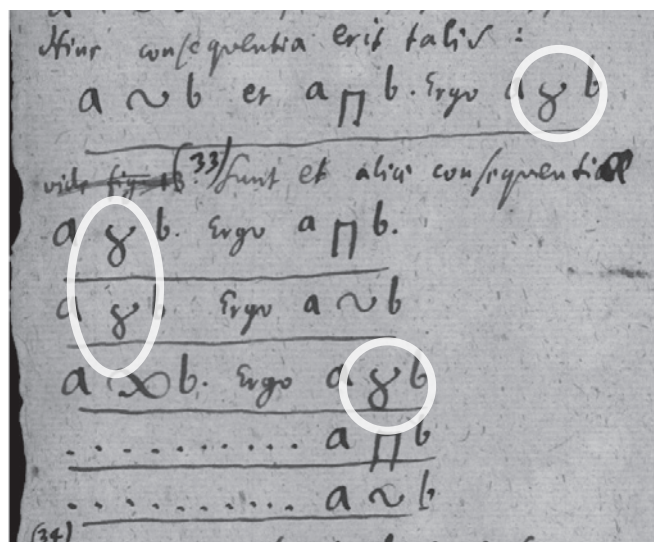 Hinc consequentia erit talis:
a ~ b et a ⊓ b. Ergo a ɣ b
(33) Sunt et aliæ consequentiæ
a ɣ b. Ergo a ⊓ b.
a ɣ b Ergo a ~ b
a ∞ b. Ergo a ɣ b
. . . . . . . . . . a ⊓ b
. . . . . . . . . . a ~ b
(34)